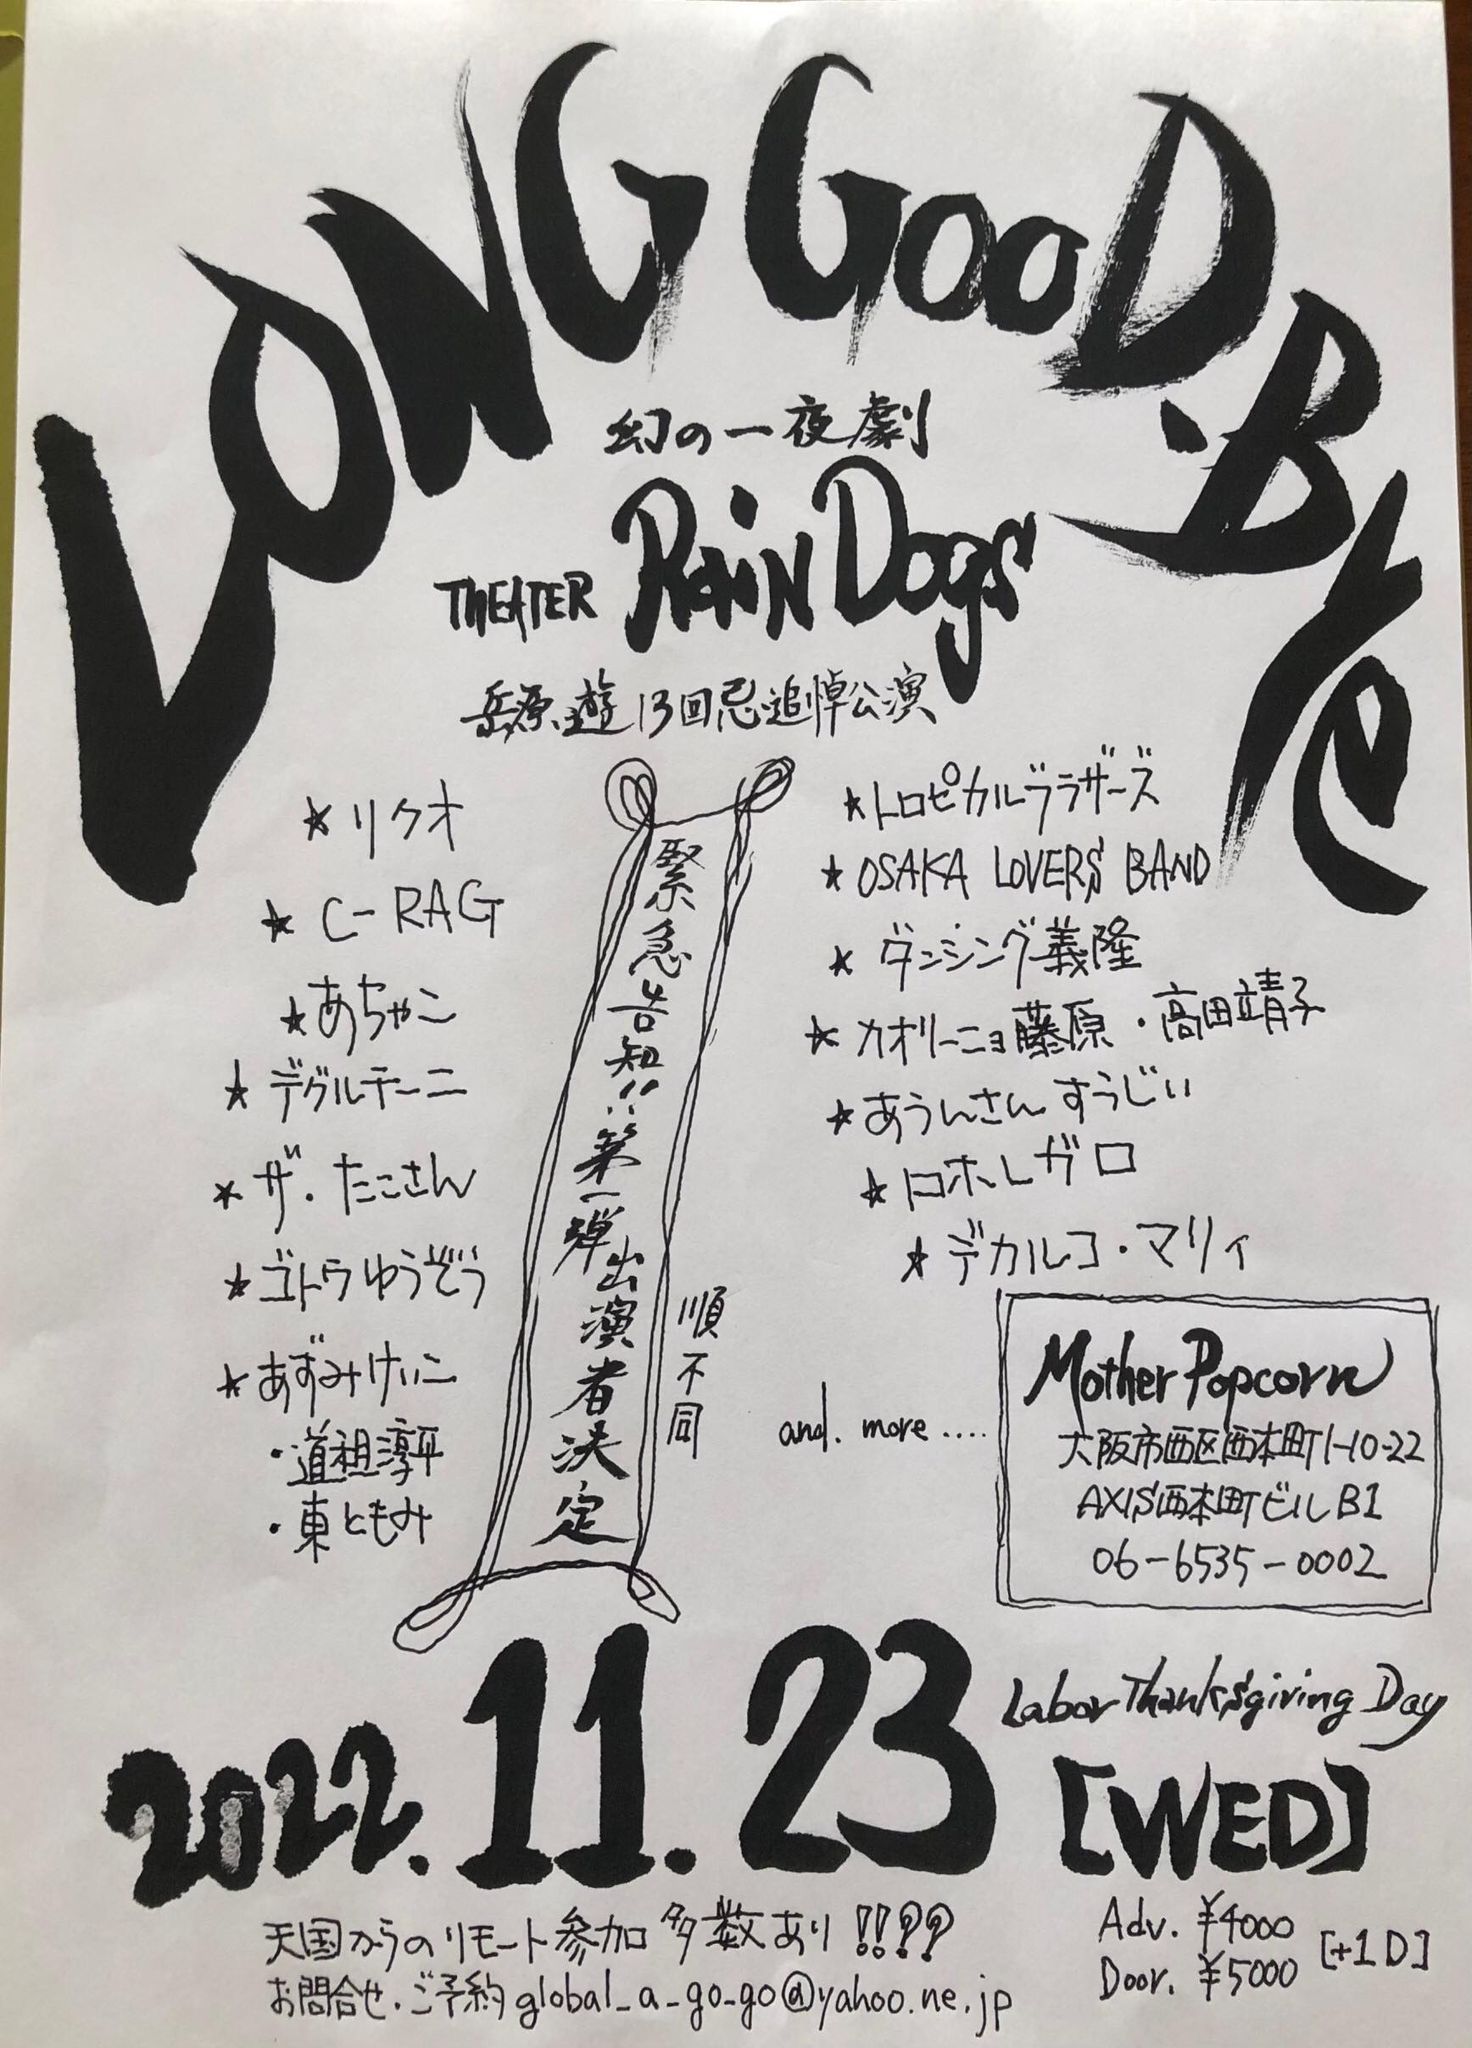 LONG GOOD.BYe
幻の一夜劇
THEATER RAiN Dogs
岳原遊13回忌追悼公演
★リクオ
★C-RAG
★あちゃこ
★デグルチーニ
★ザ・たこさん
★ゴトウゆうぞう
★あずみけいこ
・道祖淳平
・東ともみ
緊急告知!!第一弾出演者決定
順不同
★トロピカルブラザーズ
★OSAKA LOVERS BAND
★ダンシング義隆
★カオリーニョ藤原・高田靖子
★あうんさんすうじい
★ロホレガロ
★デカルコ・マリィ
and. more.....
Mother Popcorn
大阪市西区西本町1-10-22
AXIS西本町ビルB1
06-6535-0002
2022.11.23
Labor Thanksgiving Day
[WED]
天国からのリモート参加多数あり!!??
お問合せ・ご予約 global_a_go_go@yahoo.ne.jp
Adv. ¥4000
Door. ¥5000
[+1D]